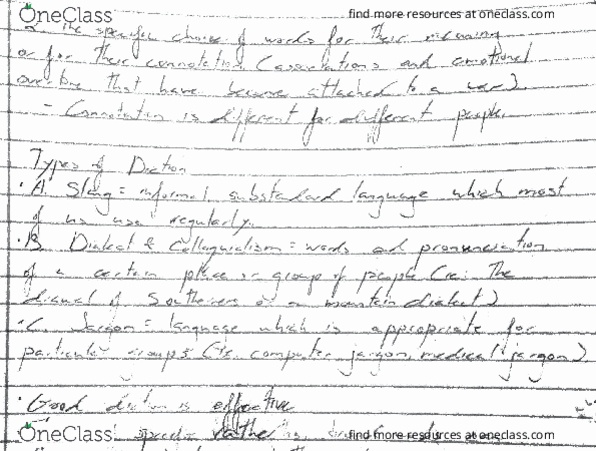 OneClass find more resources at oneclass.com
the specific choice of words for their meaning
or for their connotation (associations and emotional
overtone that have become attached to a word)
- Connotation is different for different people.
Types of Diction
• A. Slang = informal, substandard language which most
of us use regularly.
• B. Dialect & Colloquialism = words and pronunciation
of a certain place or group of people (ie: the
of Southerners or a mountain dialect)
• C. Jargon = language which is appropriate for
particular groups (ie. computer jargon, medical jargon)
• Good diction is effective
OneClass rather find more resources at oneclass.com